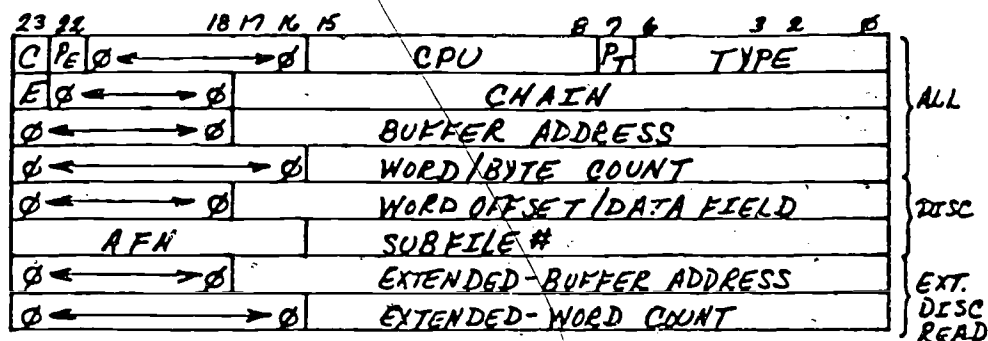 23 22 18 17 16 15 8 7 6 3 2 Ø
C PE Ø Ø CPU PT TYPE
E Ø Ø CHAIN
ALL
Ø Ø BUFFER ADDRESS
Ø Ø WORD/BYTE COUNT
Ø Ø WORD OFFSET/DATA FIELD
DISC
AFN SUBFILE #
Ø Ø EXTENDED-BUFFER ADDRESS
EXT.
DISC
Ø Ø EXTENDED-WORD COUNT
READ